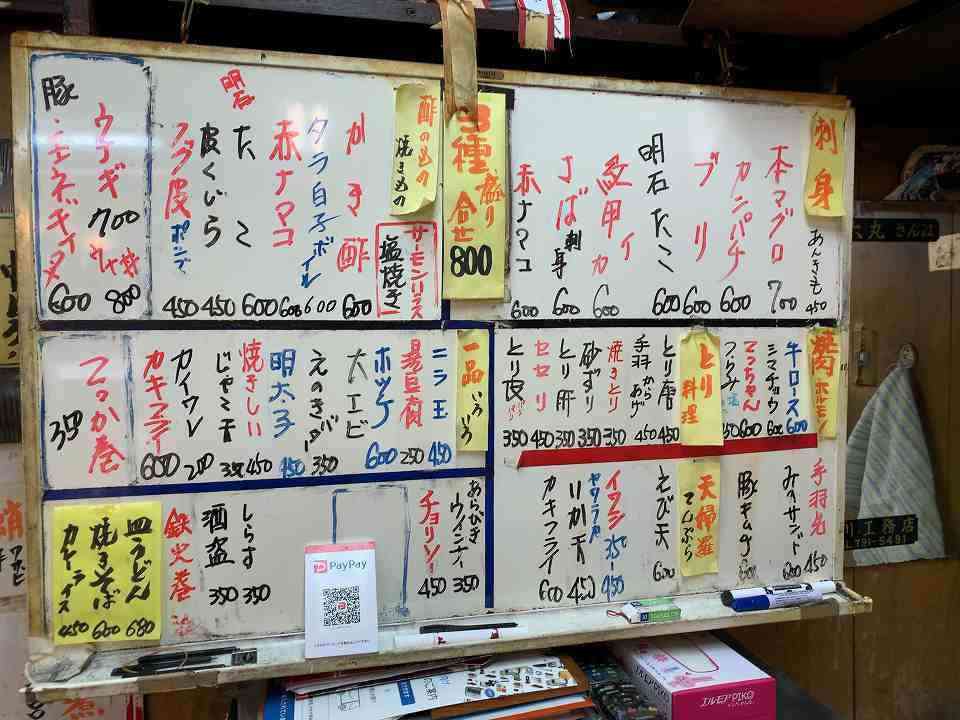 刺身
あんきも 450
本マグロ 700
カンパチ 600
ブリ 600
明石たこ 600
紋甲イカ 600
さば刺身 600
赤ナマコ 600
3種盛り合せ 800
酢のもの
焼きもの
サーモンハラス
塩焼き
かき酢 600
タラ白子ポイル 600
赤ナマコ 600
明石たこ 600
皮くじら 450
フグ皮ポンズ 450
ウナギ 700 800
豚 600
焼肉ホルモン
牛ロース 600
シマチョウ 600
てっちゃん 600
つらみ塩
とり料理
とり唐 450
手羽からあげ 450
焼きとり 350
砂ずり 350
とり肝 350
セセリ 450
とり皮 350
一品いろいろ
ニラ玉 450
揚豆腐 250
ホッケ 600
大エビ
えのきバター 350
明太子 450
焼きしい 450
じゃこ天 350
カイワレ 200
カキフライ 600
てっか巻 350
手羽先 450
みのサンド 600
豚キムチ 600
天婦羅
てんぷら
えび天 600
イワシ 450
いか天 450
カキフライ 600
あらびきウインナー 350
チョリソー 450
しらす 350
酒盗 350
鉄火巻
皿うどん 680
焼きそば 600
カレーライス 450
PayPay
六丸 さん江
川工務店
791-5491
エルモア PIKO